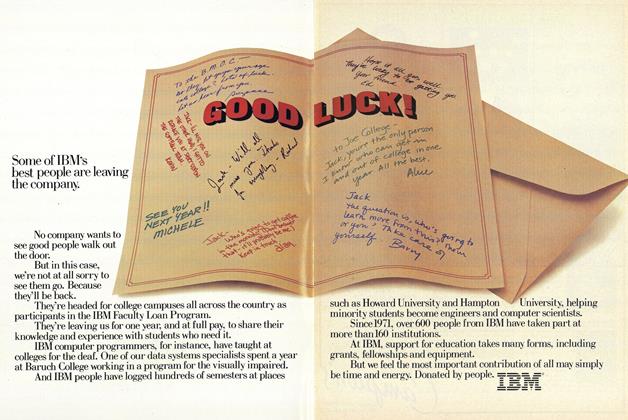 To the B.M.O.C. —
GOOD LUCK!
Hope it all goes well
They're lucky to be getting you
Ed
to Joe College –
Jack, you're the only person
I know who can get in
and out of college in one
year. All the best.
Jack – Will all
miss you. Thanks
for everything – Richard
SEE YOU
NEXT YEAR!!
MICHELE
Jack, Who's going to get coffee
in the morning? Don't answer
that - it'll probably be me!
Keep in touch
Jack
the question is, who's going to
learn more from this? Them
or you? Take care of
yourself Barry
Some of IBM's
best people are leaving
the company.
No company wants to
see good people walk out
the door.
But in this case,
we're not at all sorry to
see them go. Because
they'll be back.
They're headed for college campuses all across the country as
participants in the IBM Faculty Loan Program.
They're leaving us for one year, and at full pay, to share their
knowledge and experience with students who need it.
IBM computer programmers, for instance, have taught at
colleges for the deaf. One of our data systems specialists spent a year
at Baruch College working in a program for the visually impaired.
And IBM people have logged hundreds of semesters at places
such as Howard University and Hampton University, helping
minority students become engineers and computer scientists.
Since 1971, over 600 people from IBM have taken part at
more than 160 institutions.
At IBM, support for education takes many forms, including
grants, fellowships and equipment.
But we feel the most important contribution of all may simply
be time and energy. Donated by people. IBM